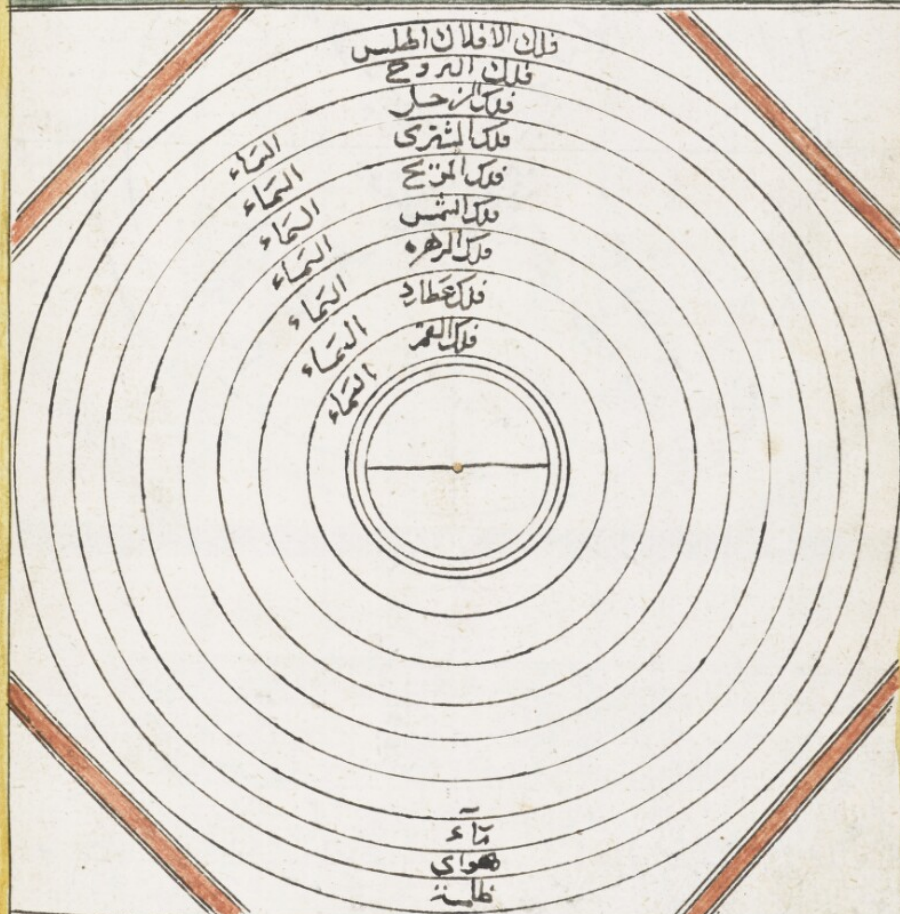 فلك الافلاك اطلس
فلك البروج
فلك الزحل
فلك المشترى
فلك المريخ
فلك الشمس
فلك الزهره
فلك عطارد
فلك القمر
السماء
السماء
السماء
السماء
السماء
السماء
السماء
مآء
هواي